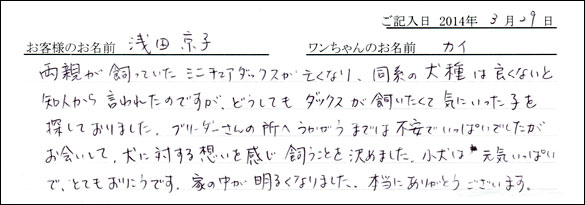 ご記入日 2014年 3月29日
お客様のお名前 浅田 京子 ワンちゃんのお名前 カイ
両親が飼っていたミニチュアダックスが亡くなり、同系の犬種は良くないと
知人から言われたのですが、どうしてもダックスが飼いたくて気にいった子を
探しておりました。ブリーダーさんの所へうかがうまでは不安でいっぱいでしたが
お会いして、犬に対する想いを感じ飼うことを決めました。小犬は元気いっぱい
で、とてもおりこうです。家の中が明るくなりました。本当にありがとうございます。